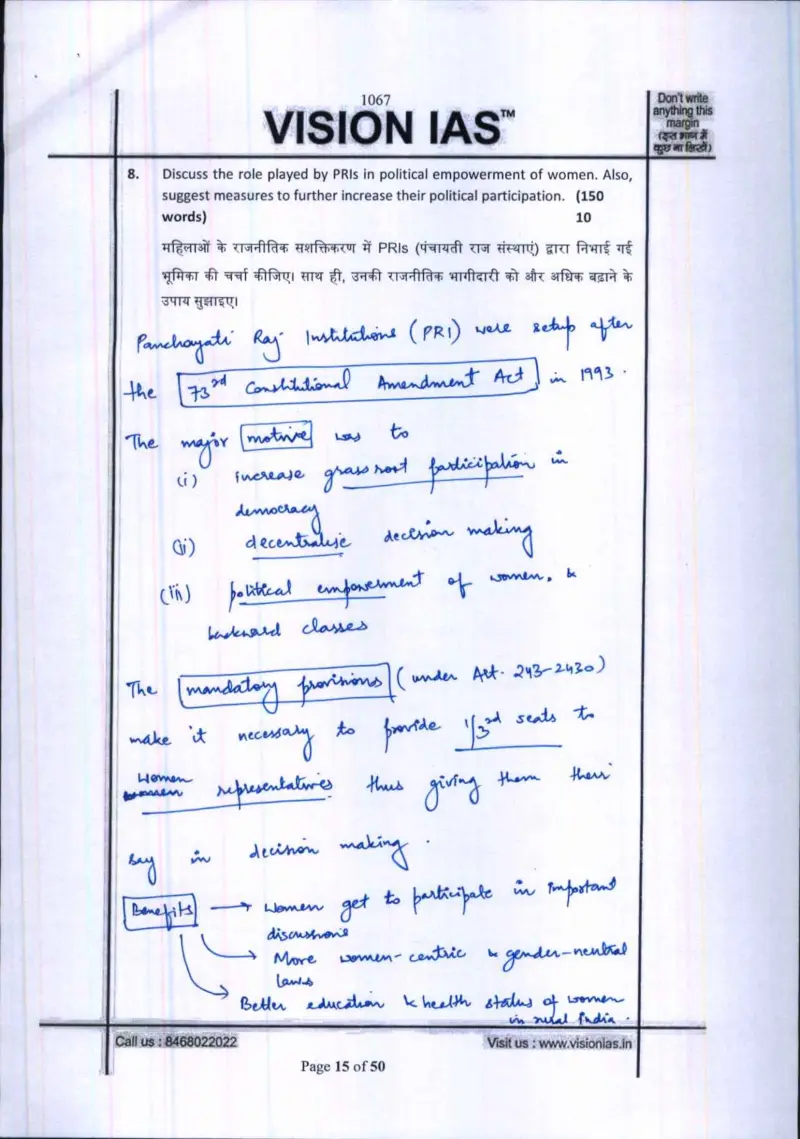 1067
VISION IAS™
Don't write
anything this
margin
(इस भाग में
कुछ ना लिखें)
8. Discuss the role played by PRIs in political empowerment of women. Also,
suggest measures to further increase their political participation. (150
words) 10
महिलाओं के राजनीतिक सशक्तिकरण में PRIs (पंचायती राज संस्थाएं) द्वारा निभाई गई
भूमिका की चर्चा कीजिए। साथ ही, उनकी राजनीतिक भागीदारी को और अधिक बढ़ाने के
उपाय सुझाइए।
Panchayati Raj Institutions (PRI) were setup after
the 73rd Constitutional Amendment Act in 1993.
The major motive was to
(i) increase grassroot participation in
democracy
(ii) decentralise decision making
(iii) political empowerment of women, &
backward classes
The mandatory provisions (under Art. 243-243O)
make it necessary to provide 1/3rd seats to
women
women representatives thus giving them their
say in decision making.
Benefits → Women get to participate in important
discussions
→ More women-centric & gender-neutral
laws
→ Better education & health status of women
in rural India.
Call us : 8468022022
Visit us : www.visionias.in
Page 15 of 50